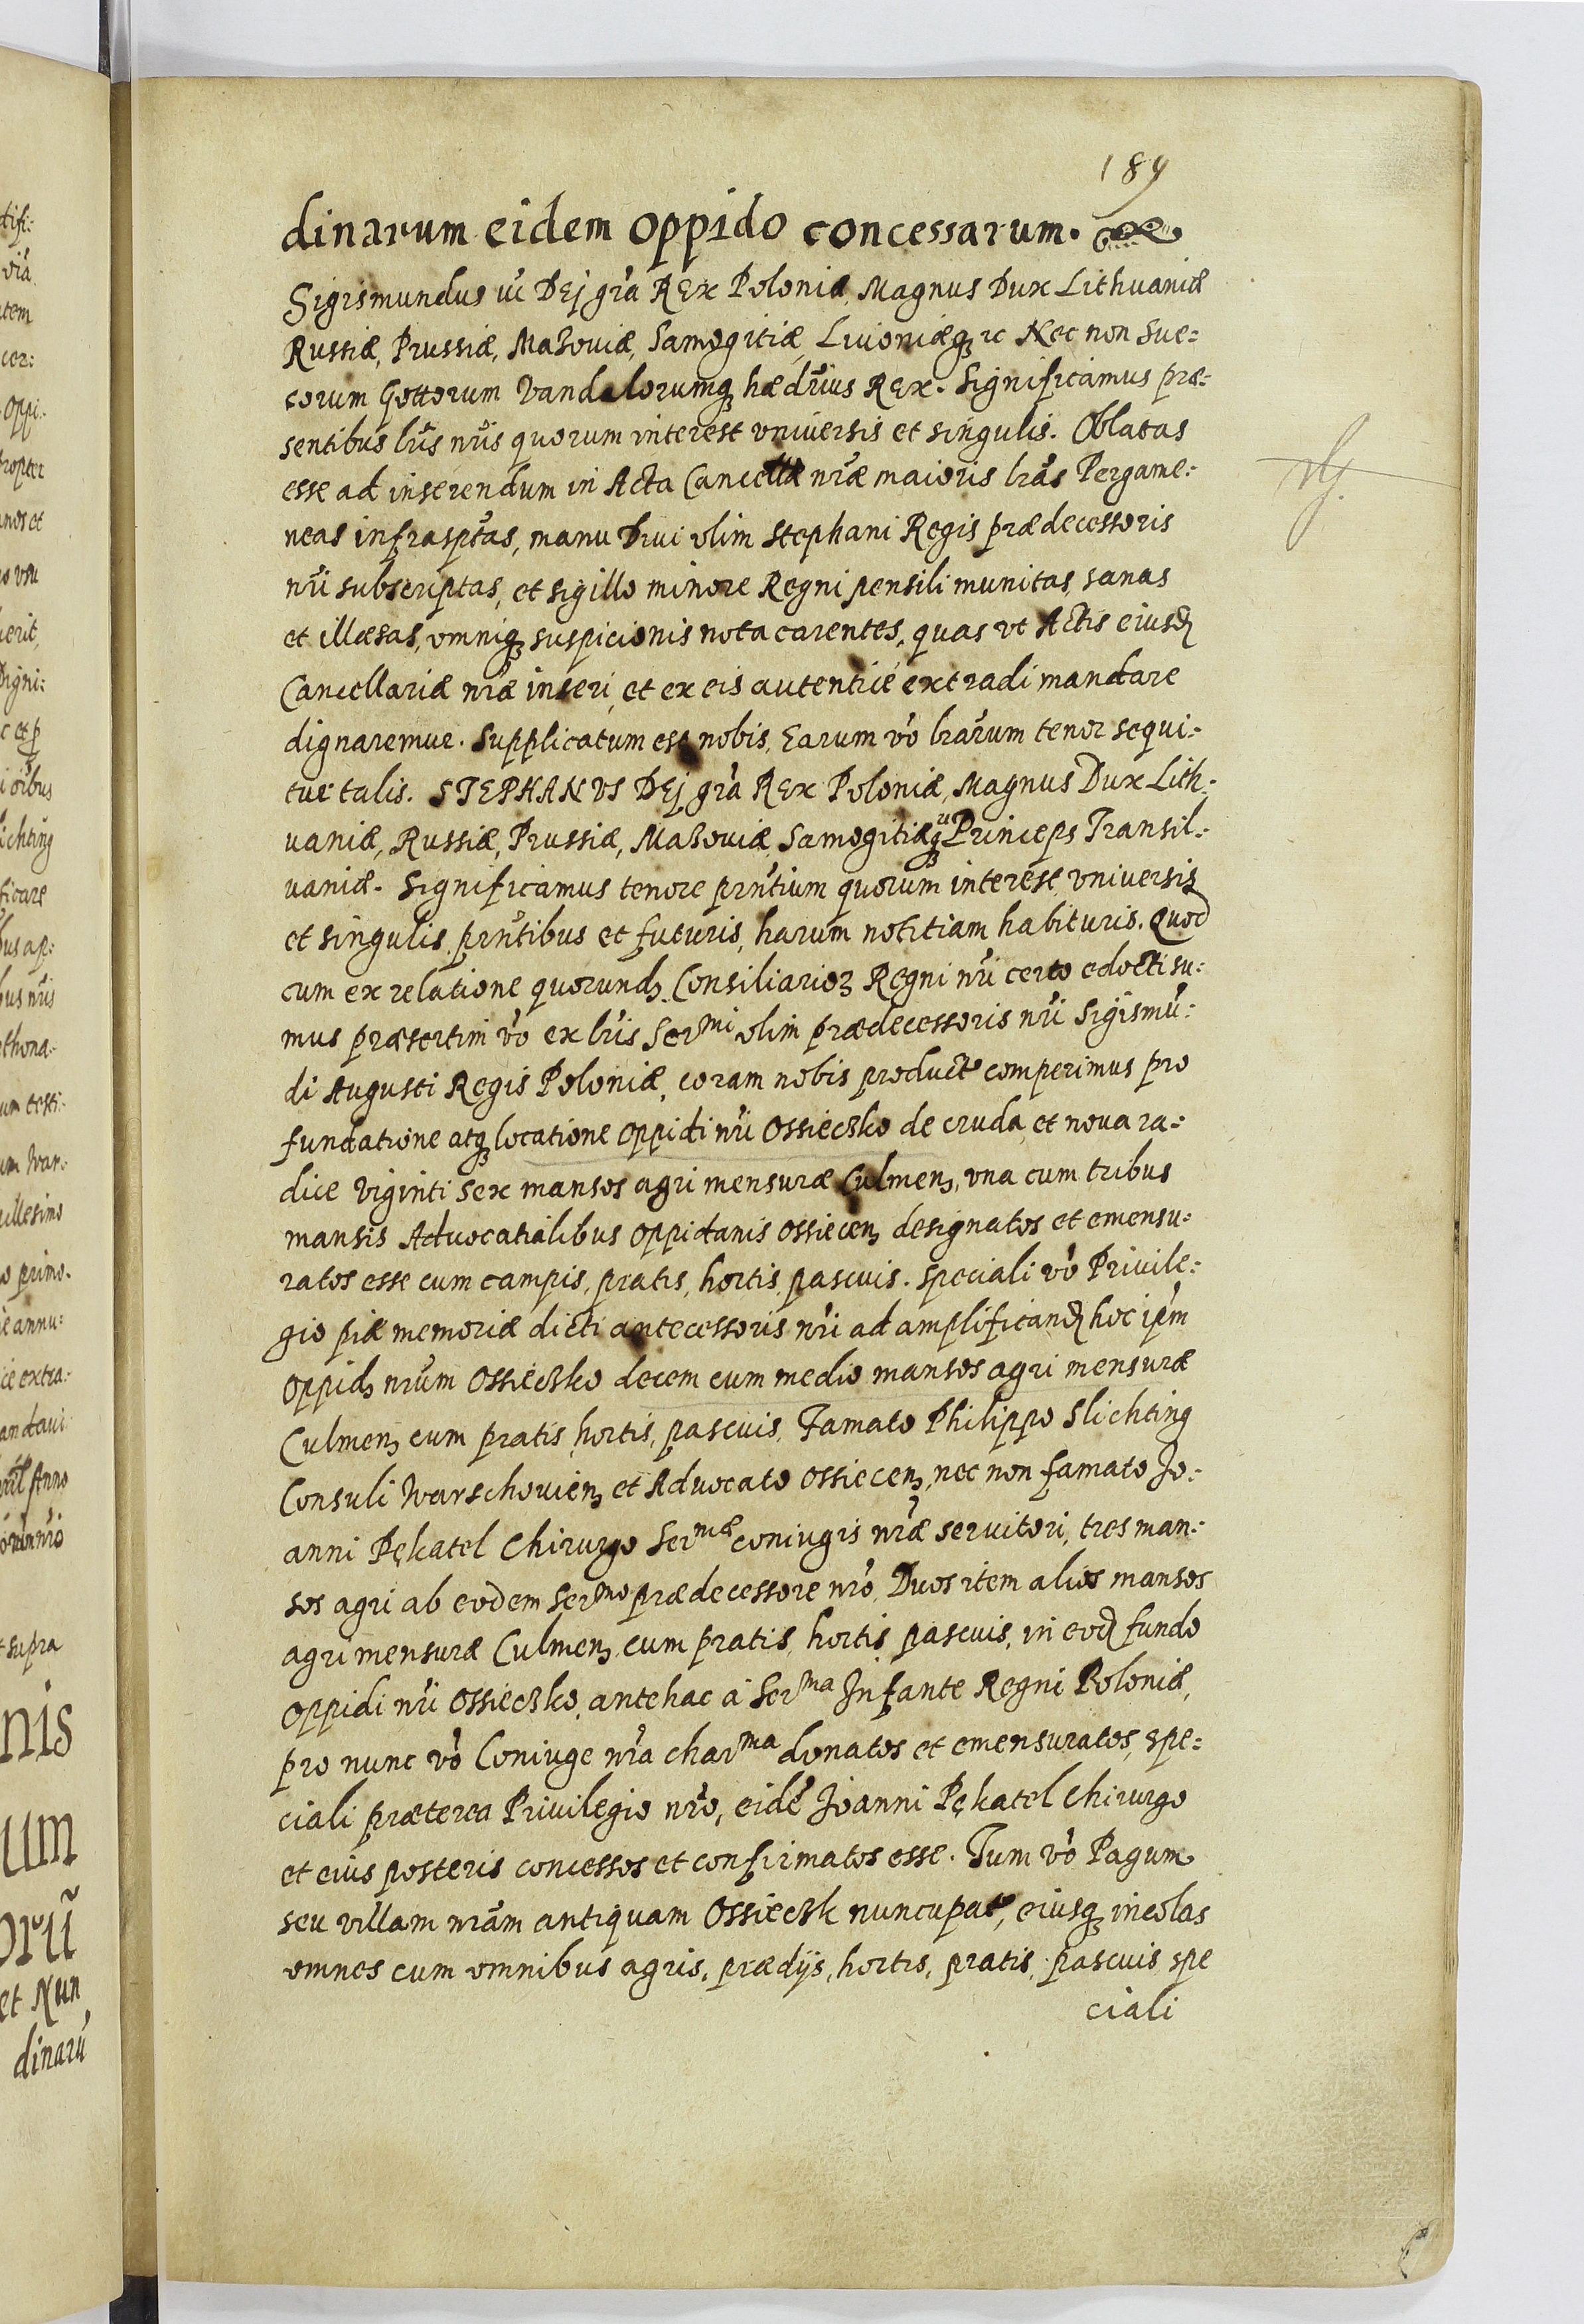 189
dinarum eidem oppido concessarum.
Sigismundus IIĨ Dej gr̃a Rex Poloniæ, Magnus Dux Lithuaniæ
Russiæ, Prussiæ, Mazouiæ, Samogitiæ, Liuoniæqꝫ ꝛc Nec non Sue:
corum Gottorum Vandalorumqꝫ hæd̃rius Rex. Significamus præ:
sentibus lr̃is nr̃is quorum interest vniuersis et singulis. Oblatas
esse ad inserendum in Acta Cancellæ nr̃æ maioris lr̃as Pergame:
neas infrasp̃tas, manu Diui olim Stephani Regis prædecessoris
nr̃i subscriptas, et sigillo minore Regni pensili munitas, sanas
et illæsas, omniqꝫ suspicionis nota carentes, quas vt Actis eiusd
Cancellariæ nr̃æ inseri, et ex eis autenticé extradi mandare
dignaremur. Supplicatum est nobis, Earum vo᷃ lr̃arum tenor sequi:
tur talis. STEPHANVS Dej gr̃a Rex Poloniæ, Magnus Dux Lith:
uaniæ, Russiæ, Prussiæ, Mazouiæ, Samogitiæqꝫ ꝛc Princeps Transil:
uaniæ. Significamus tenore prñtium quorum interest vniuersis
et singulis prñtibus et futuris, harum notitiam habituris. Quod
cum ex relatione quorundꝫ Consiliarioꝫ Regni nr̃i certo edocti su:
mus præsertim vo᷃ ex lr̃is Sermi olim prædecessoris nr̃i Sigismũ:
di Augusti Regis Poloniæ, coram nobis product comperimus pro
fundatione atqꝫ locatione oppidi nr̃i Ossieczko de cruda et noua ra:
dice viginti sex mansos agri mensuræ Culmenꝫ, vna cum tribus
mansis Aduocatialibus oppidanis Ossiecenꝫ designatos et emensu:
ratos esse cum campis, pratis, hortis, pascuis. speciali vo᷃ Priuile:
gio piæ memoriæ dicti antecessoris nr̃i ad amplificand hoc ip̃m
oppidꝫ nr̃um Ossieczko decem cum medio mansos agri mensuræ
Culmenꝫ cum pratis, hortis, pascuis, Famato Philippo Slichting
Consuli Warschouienꝫ et Aduocato Ossiecenꝫ, nec non famato Jo:
anni Pękatel Chirurgo Sermæ coniugis nr̃æ seruitori, tres man:
sos agri ab eodem Sermo prædecessore nr̃o, Duos item alios mansos
agri mensuræ Culmenꝫ cum pratis, hortis pascuis, in eod fundo
oppidi nr̃i Ossieczko, antehac à Serma Infante Regni Poloniæ,
pro nunc vo᷃ Coniuge nr̃a charma donatos et emensuratos, spe:
ciali præterea Priuilegio nr̃o, eidẽ Joanni Pękatel Chirurgo
et eius posteris concessos et confirmatos esse. Tum vo᷃ Pagum
seu villam nr̃am antiquam Ossieczk nuncupat, eiusqꝫ incolas
omnes cum omnibus agris, prædijs, hortis, pratis, pascuis spe
ciali